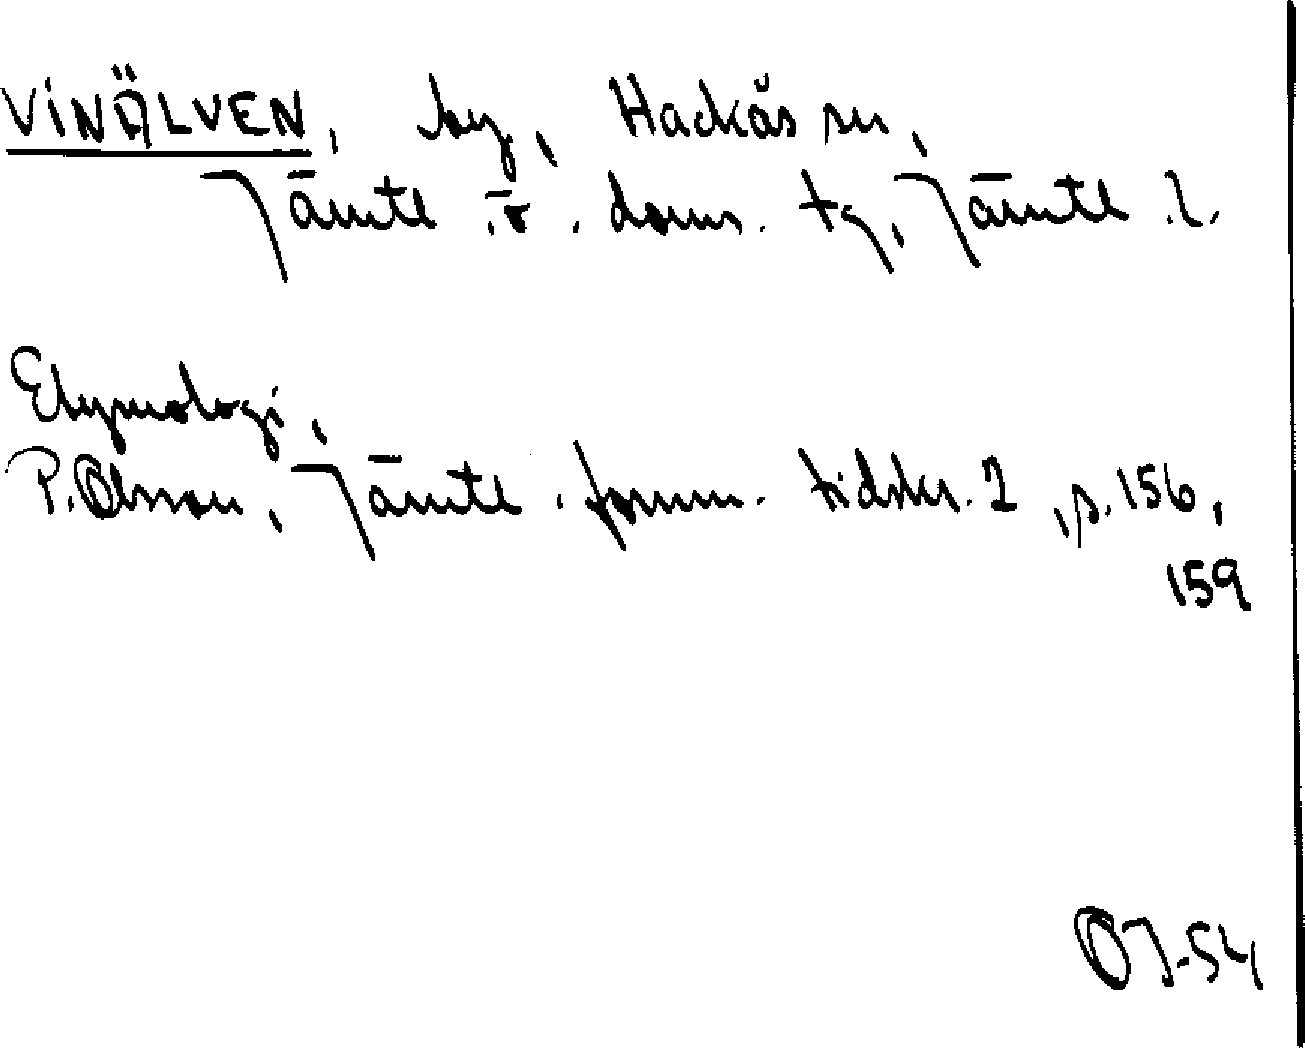 VINÄLVEN, by, Hackås sn,
Jämtl. v. doms. tg, Jämtl. l.
Etymologi,
P. Olsson, Jämtl. fornm. tidskr. 2, s. 156,
159
OJ-54